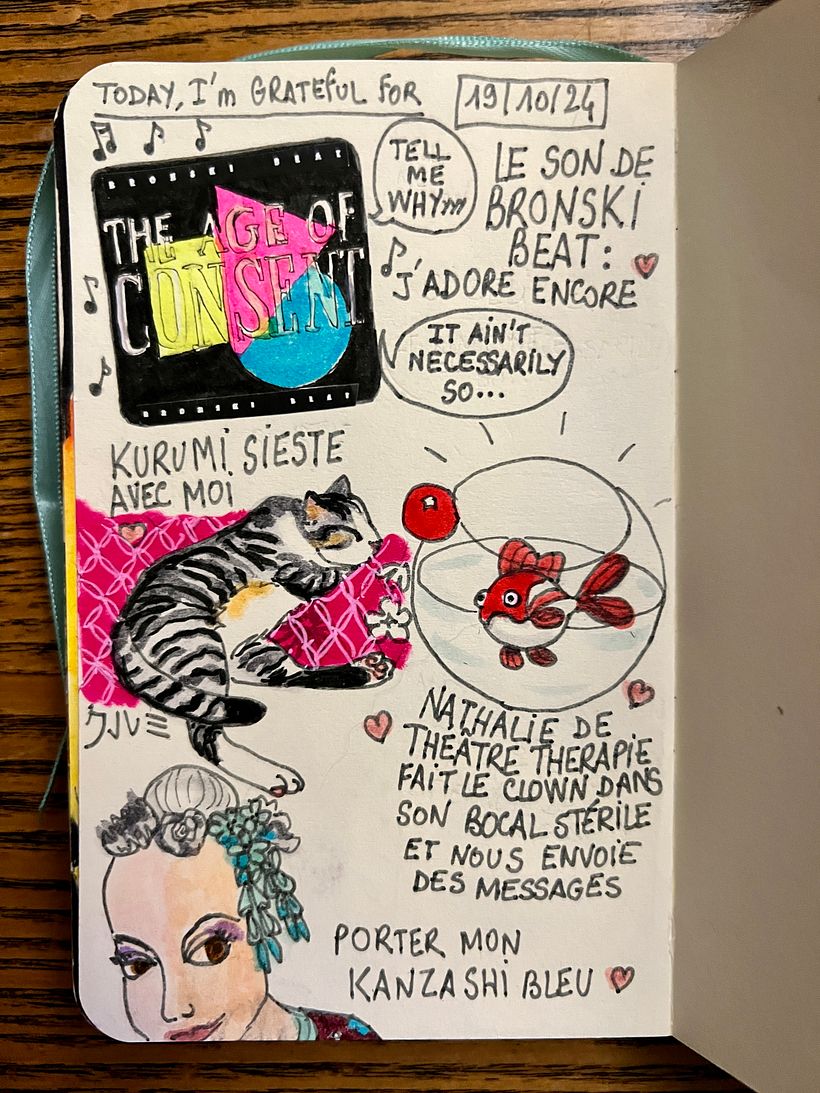 TODAY, I'm GRATEFUL FOR
19/10/24
BRONSKI BEAT
THE AGE OF
CONSENT
BRONSKI BEAT
TELL
ME
WHY???
LE SON DE
BRONSKI
BEAT:
J'ADORE ENCORE
IT AIN'T
NECESSARILY
SO...
KURUMI SIESTE
AVEC MOI
クルミ
NATHALIE DE
THEÂTRE THERAPIE
FAIT LE CLOWN DANS
SON BOCAL STÉRILE
ET NOUS ENVOIE
DES MESSAGES
PORTER MON
KANZASHI BLEU